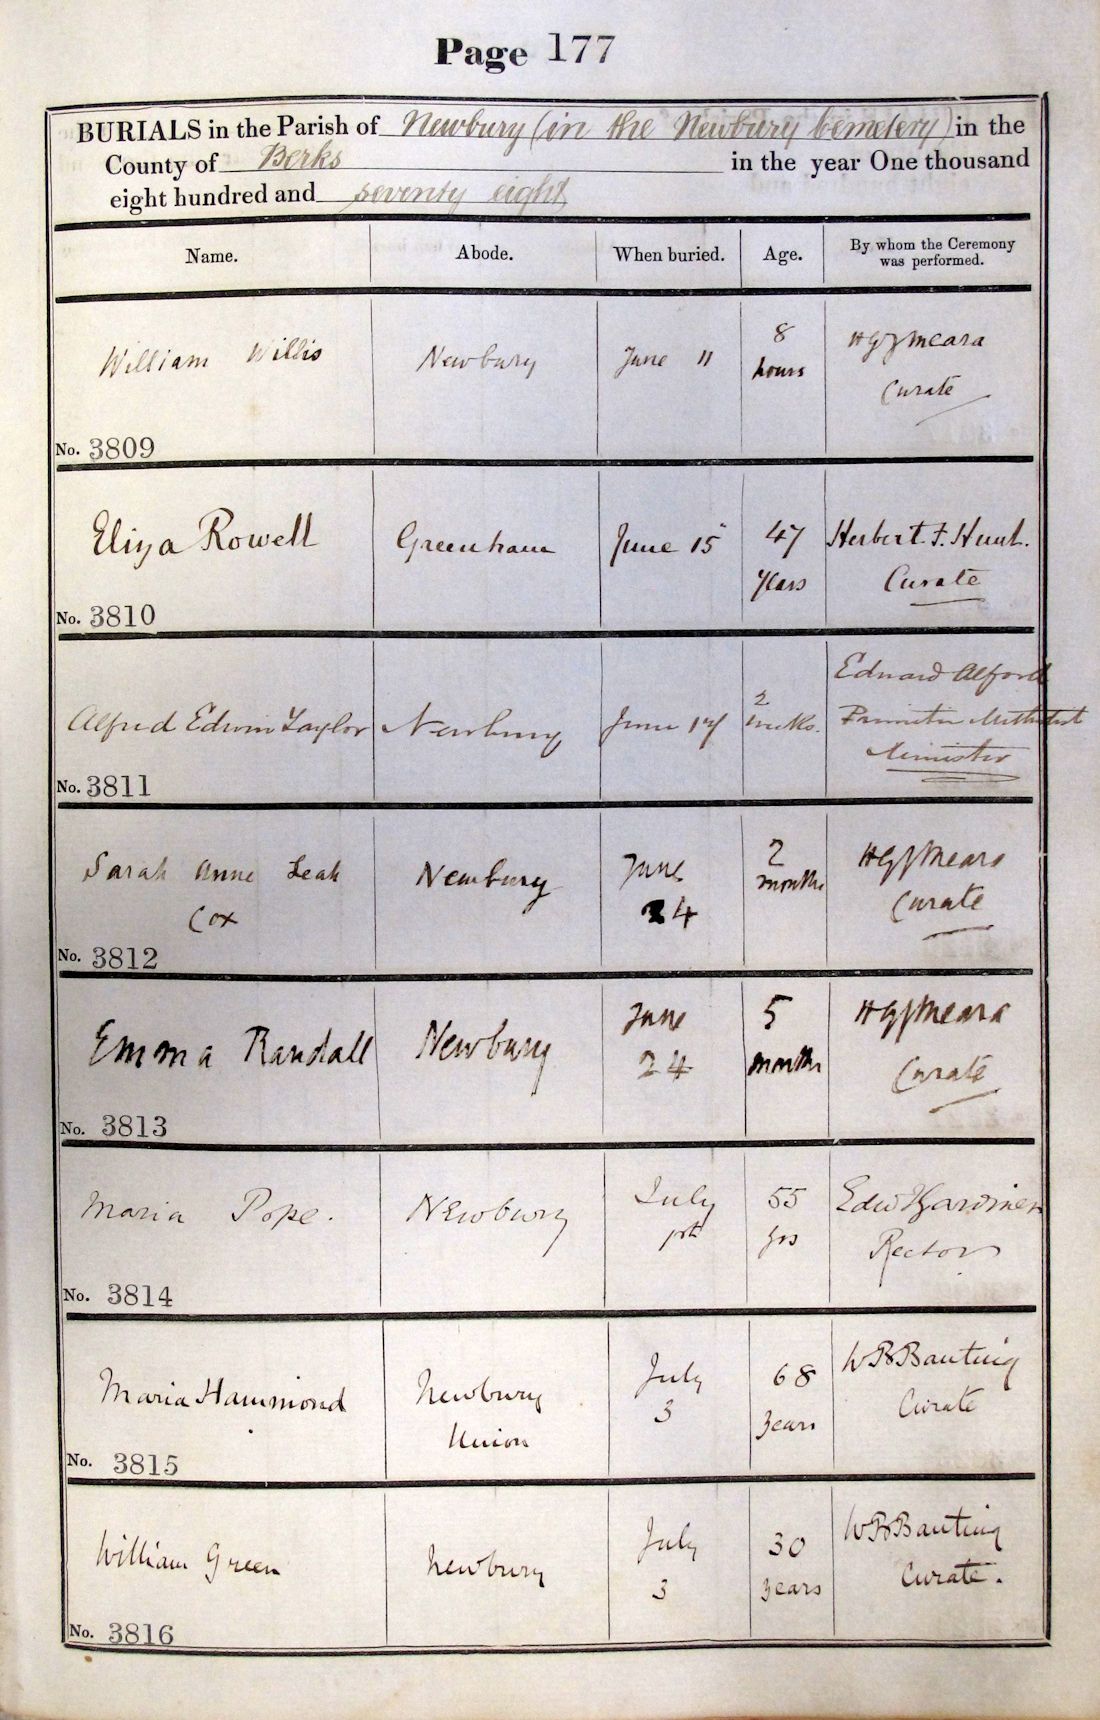 Page 177
BURIALS in the Parish of Newbury (in the Newbury Cemetery) in the
County of Berks in the year One thousand
eight hundred and seventy eight
Name. Abode. When buried. Age. By whom the Ceremony was performed.
William Willis Newbury June 11 8 hours
Curate
No. 3809
Eliza Rowell Greenham June 15 47 years Herbert F. Hunt.
Curate
No. 3810
Alfred Edwin Taylor Newbury June 17 2 weeks. Edward Alford
Primitive Methodist
Minister
No. 3811
Sarah Anne Leah Newbury June 2 months
Cox 24 Curate
No. 3812
Emma Randall Newbury June 5
24 months Curate
No. 3813
Maria Pope. Newbury July 55 Edw Gardiner
1st yrs Rector
No. 3814
Maria Hammond Newbury July 68 W B Banting
Union 3 years Curate
No. 3815
William Green Newbury July 30 W B Banting
3 years Curate.
No. 3816